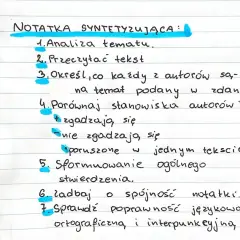 NOTATKA SYNTETYZUJĄCA:
1. Analiza tematu.
2. Przeczytać tekst
3. Określ, co każdy z autorów są-
na temat podany w zdan
4. Porównaj stanowiska autorów
zgadzają się
nie zgadzają się
poruszone w jednym tekście
5. Sformuowanie ogólnego
stwierdzenia.
6. Zadbaj o spójność notatki.
7. Sprawdź poprawność językow
ortograficzną i interpunkcyjną